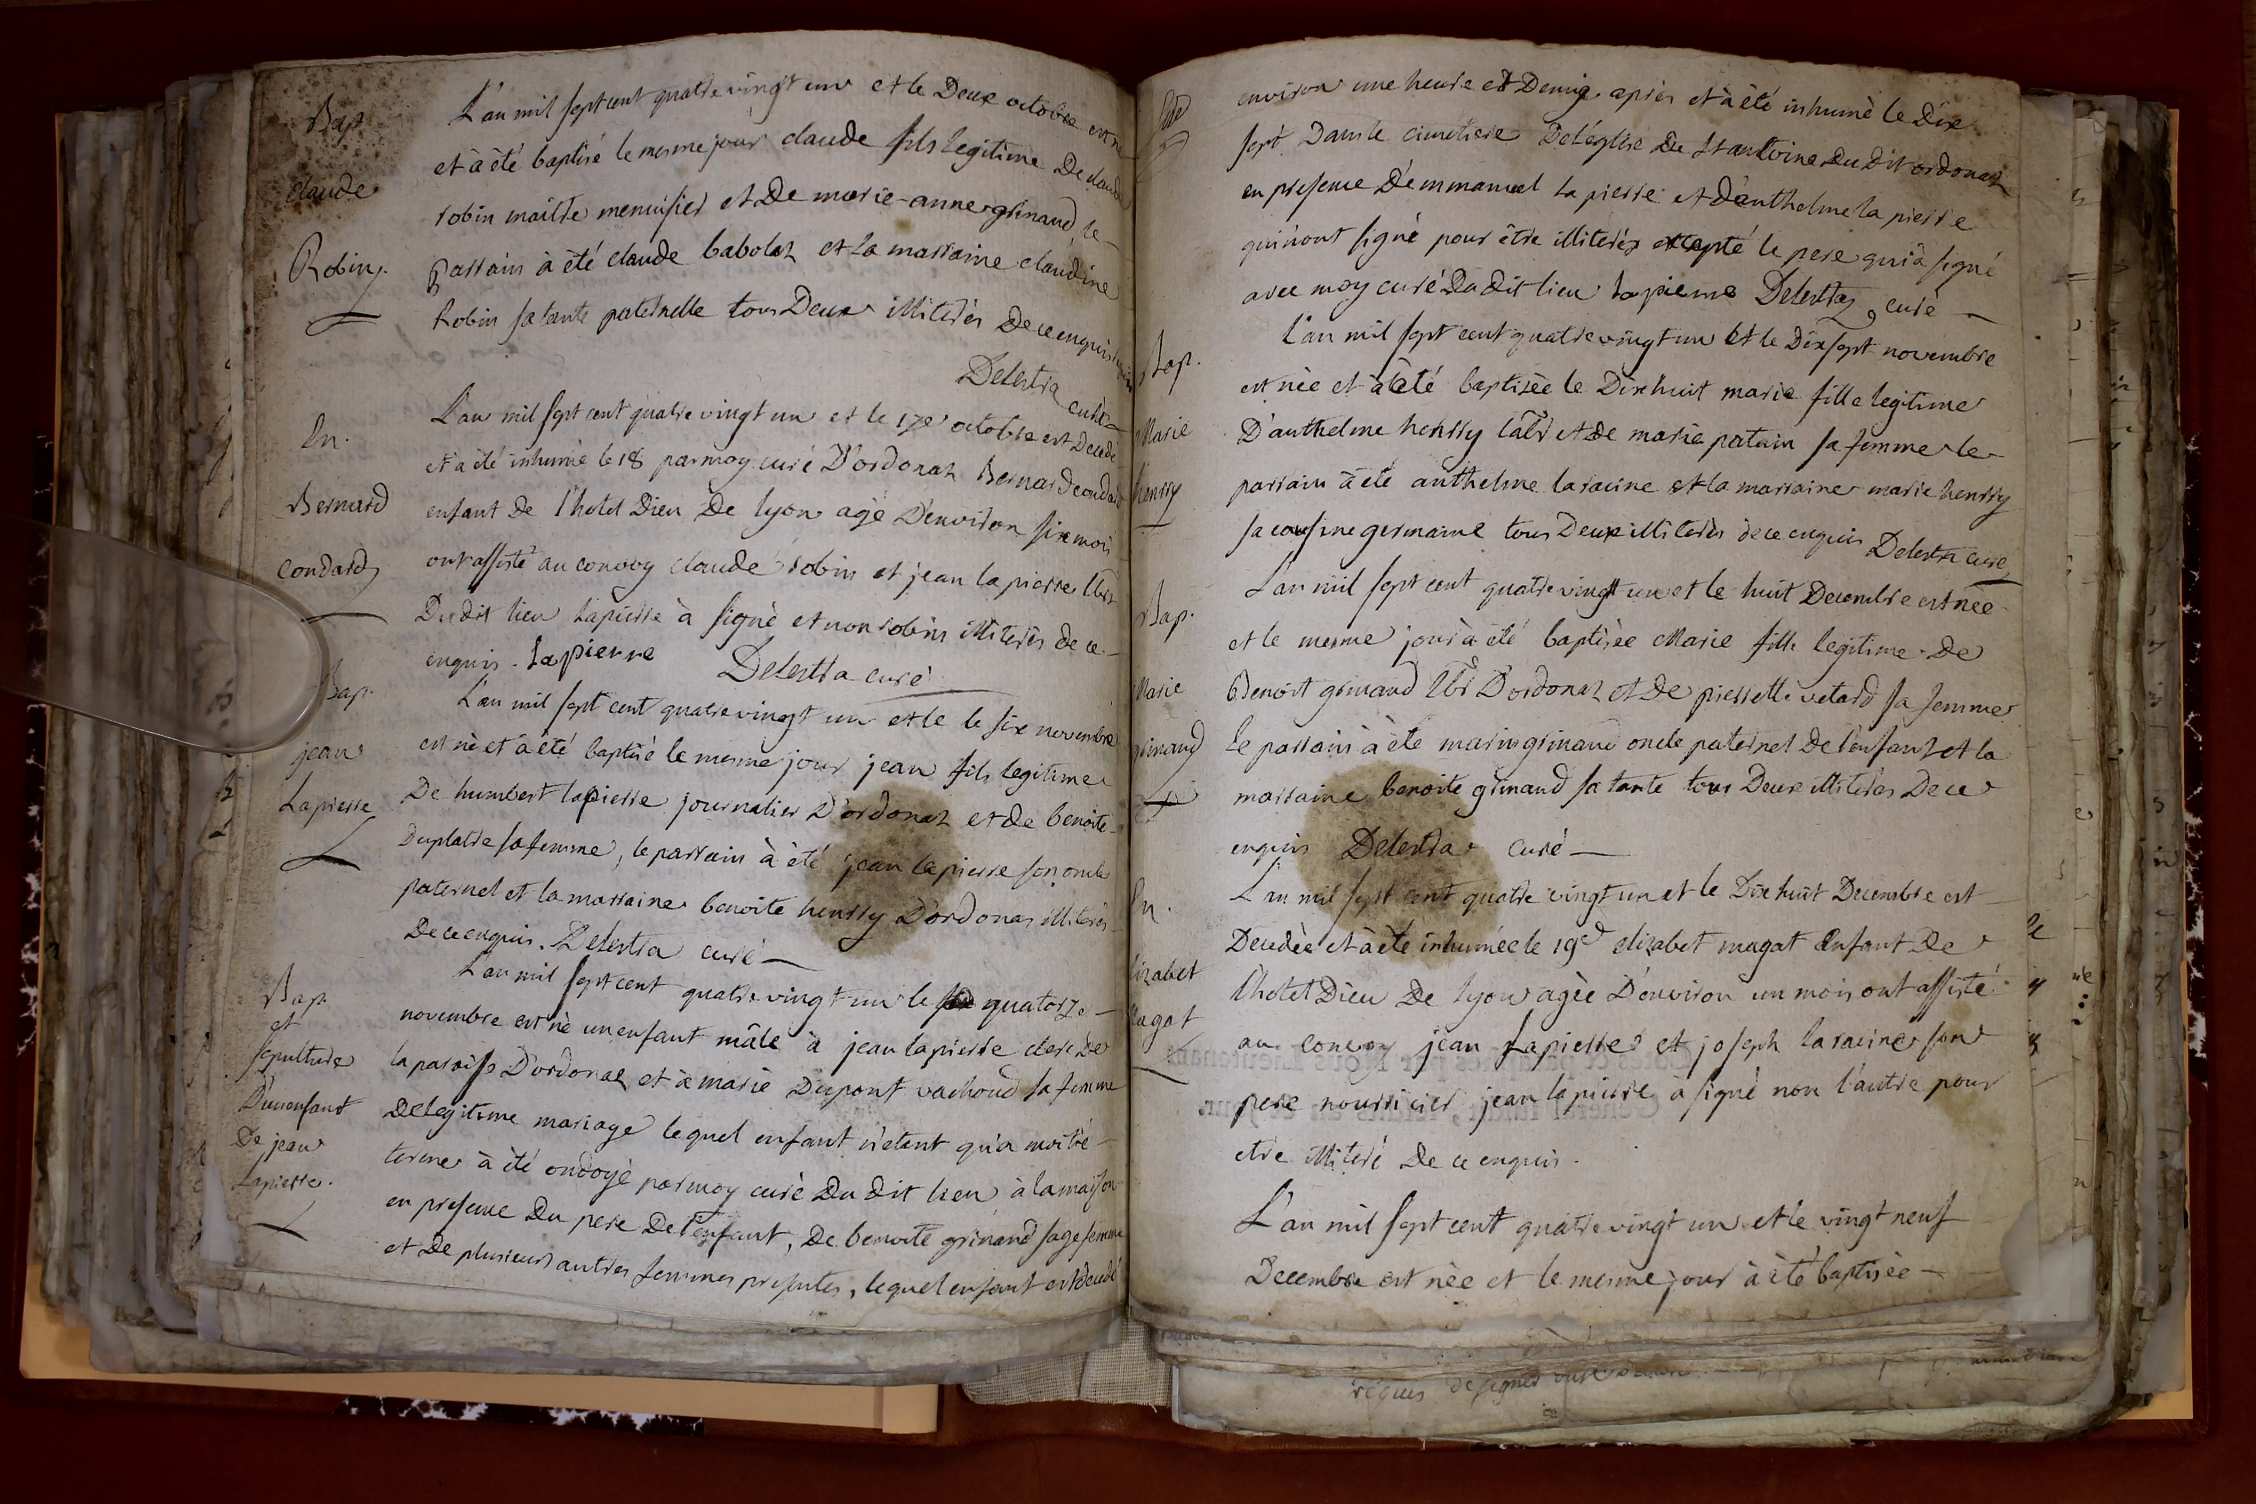 Bap.
claude
Robin.
L'an mil sept cent quatre vingt un et le Deux octobre est né
et à été baptisé le mesme jour claude fils legitime De claude
robin maitre menuisier et De marie-anne grinand, le
parrain à été claude babolaz et la marraine claudine
Robin sa tante paternelle tous Deux illiterés De ce enquis
Delestra curé
En.
Bernard
condard
L'an mil sept cent quatre vingt un et le 17e octobre est Decedé
et a été inhumé le 18 par moy curé D'ordonaz Bernard condard
enfant De l'hotel Dieu De lyon agé D'environ six mois
ont assisté au convoy claude robin et jean la pierre lbrs
Du dit lieu lapierre à signé et non robin illiterés de ce
enquis. lapierre Delestra curé
Bap.
jean
Lapierre
L'an mil sept cent quatre vingt un et le le six novembre
est né et à été baptisé le mesme jour jean fils legitime
De humbert lapierre journalier D'ordonaz et de benoite
Duplatre sa femme, le parrain à été jean lapierre son oncle
paternel et la marraine benoite henrry D'ordonas illiterés
De ce enquis. Delestra curé
Bap.
et
sepulture
D'un enfant
De jean
Lapierre.
L'an mil sept cent quatre vingt un le quatorze
novembre est né un enfant mâle à jean lapierre clerc De
la paroisse D'ordonaz et à marie Dupont vachoud sa femme
De legitime mariage lequel enfant n'etant qu'a moitié
terme à été ondoyé par moy curé Du dit lieu à la maison
en presence Du pere De l'enfant, De benoite grinand sagefemme
et De plusieurs autres femmes presentes, lequel enfant est decedé
environ une heure et Demie après et à été inhumé le Dix
sept Dans le cimetiere De l'église De St antoine Du Dit ordonaz
en presence D'emmanuel la pierre et D'anthelme la pierre
qui n'ont signé pour être illiterés excepté le pere qui a signé
avec moy curé Du dit lieu lapierre Delestra curé
Bap.
Marie
henrry
L'an mil sept cent quatre vingt un et le Dix sept novembre
est née et à été baptisée le Dix huit marie fille legitime
D'anthelme henrry labr et de marie patain sa femme le
parrain à été anthelme laracine et la marraine marie henrry
sa cousine germaine tous Deux illiterés de ce enquis Delestra curé
Bap.
Marie
grinand
L'an mil sept cent quatre vingt un et le huit Decembre est née
et le mesme jour à été baptisée Marie fille legitime De
Benoit grinand lbr D'ordonaz et De pierrette vetard sa femme
Le parrain à été marin grinand oncle paternel De l'enfant et la
marraine benoite grinand sa tante tous Deux illiterés De ce
enquis Delestra curé
En.
Elizabet
Magat
L'an mil sept cent quatre vingt un et le Dix huit Decembre est
Decedée et à été inhumée le 19e elizabet magat enfant De
l'hotel Dieu De lyon agée D'environ un mois ont assisté
au convoy jean Lapierre et joseph laracine son
pere nourricier jean lapierre à signé non l'autre pour
etre illiteré De ce enquis.
L'an mil sept cent quatre vingt un et le vingt neuf
Decembre est née et le mesme jour à été baptisée